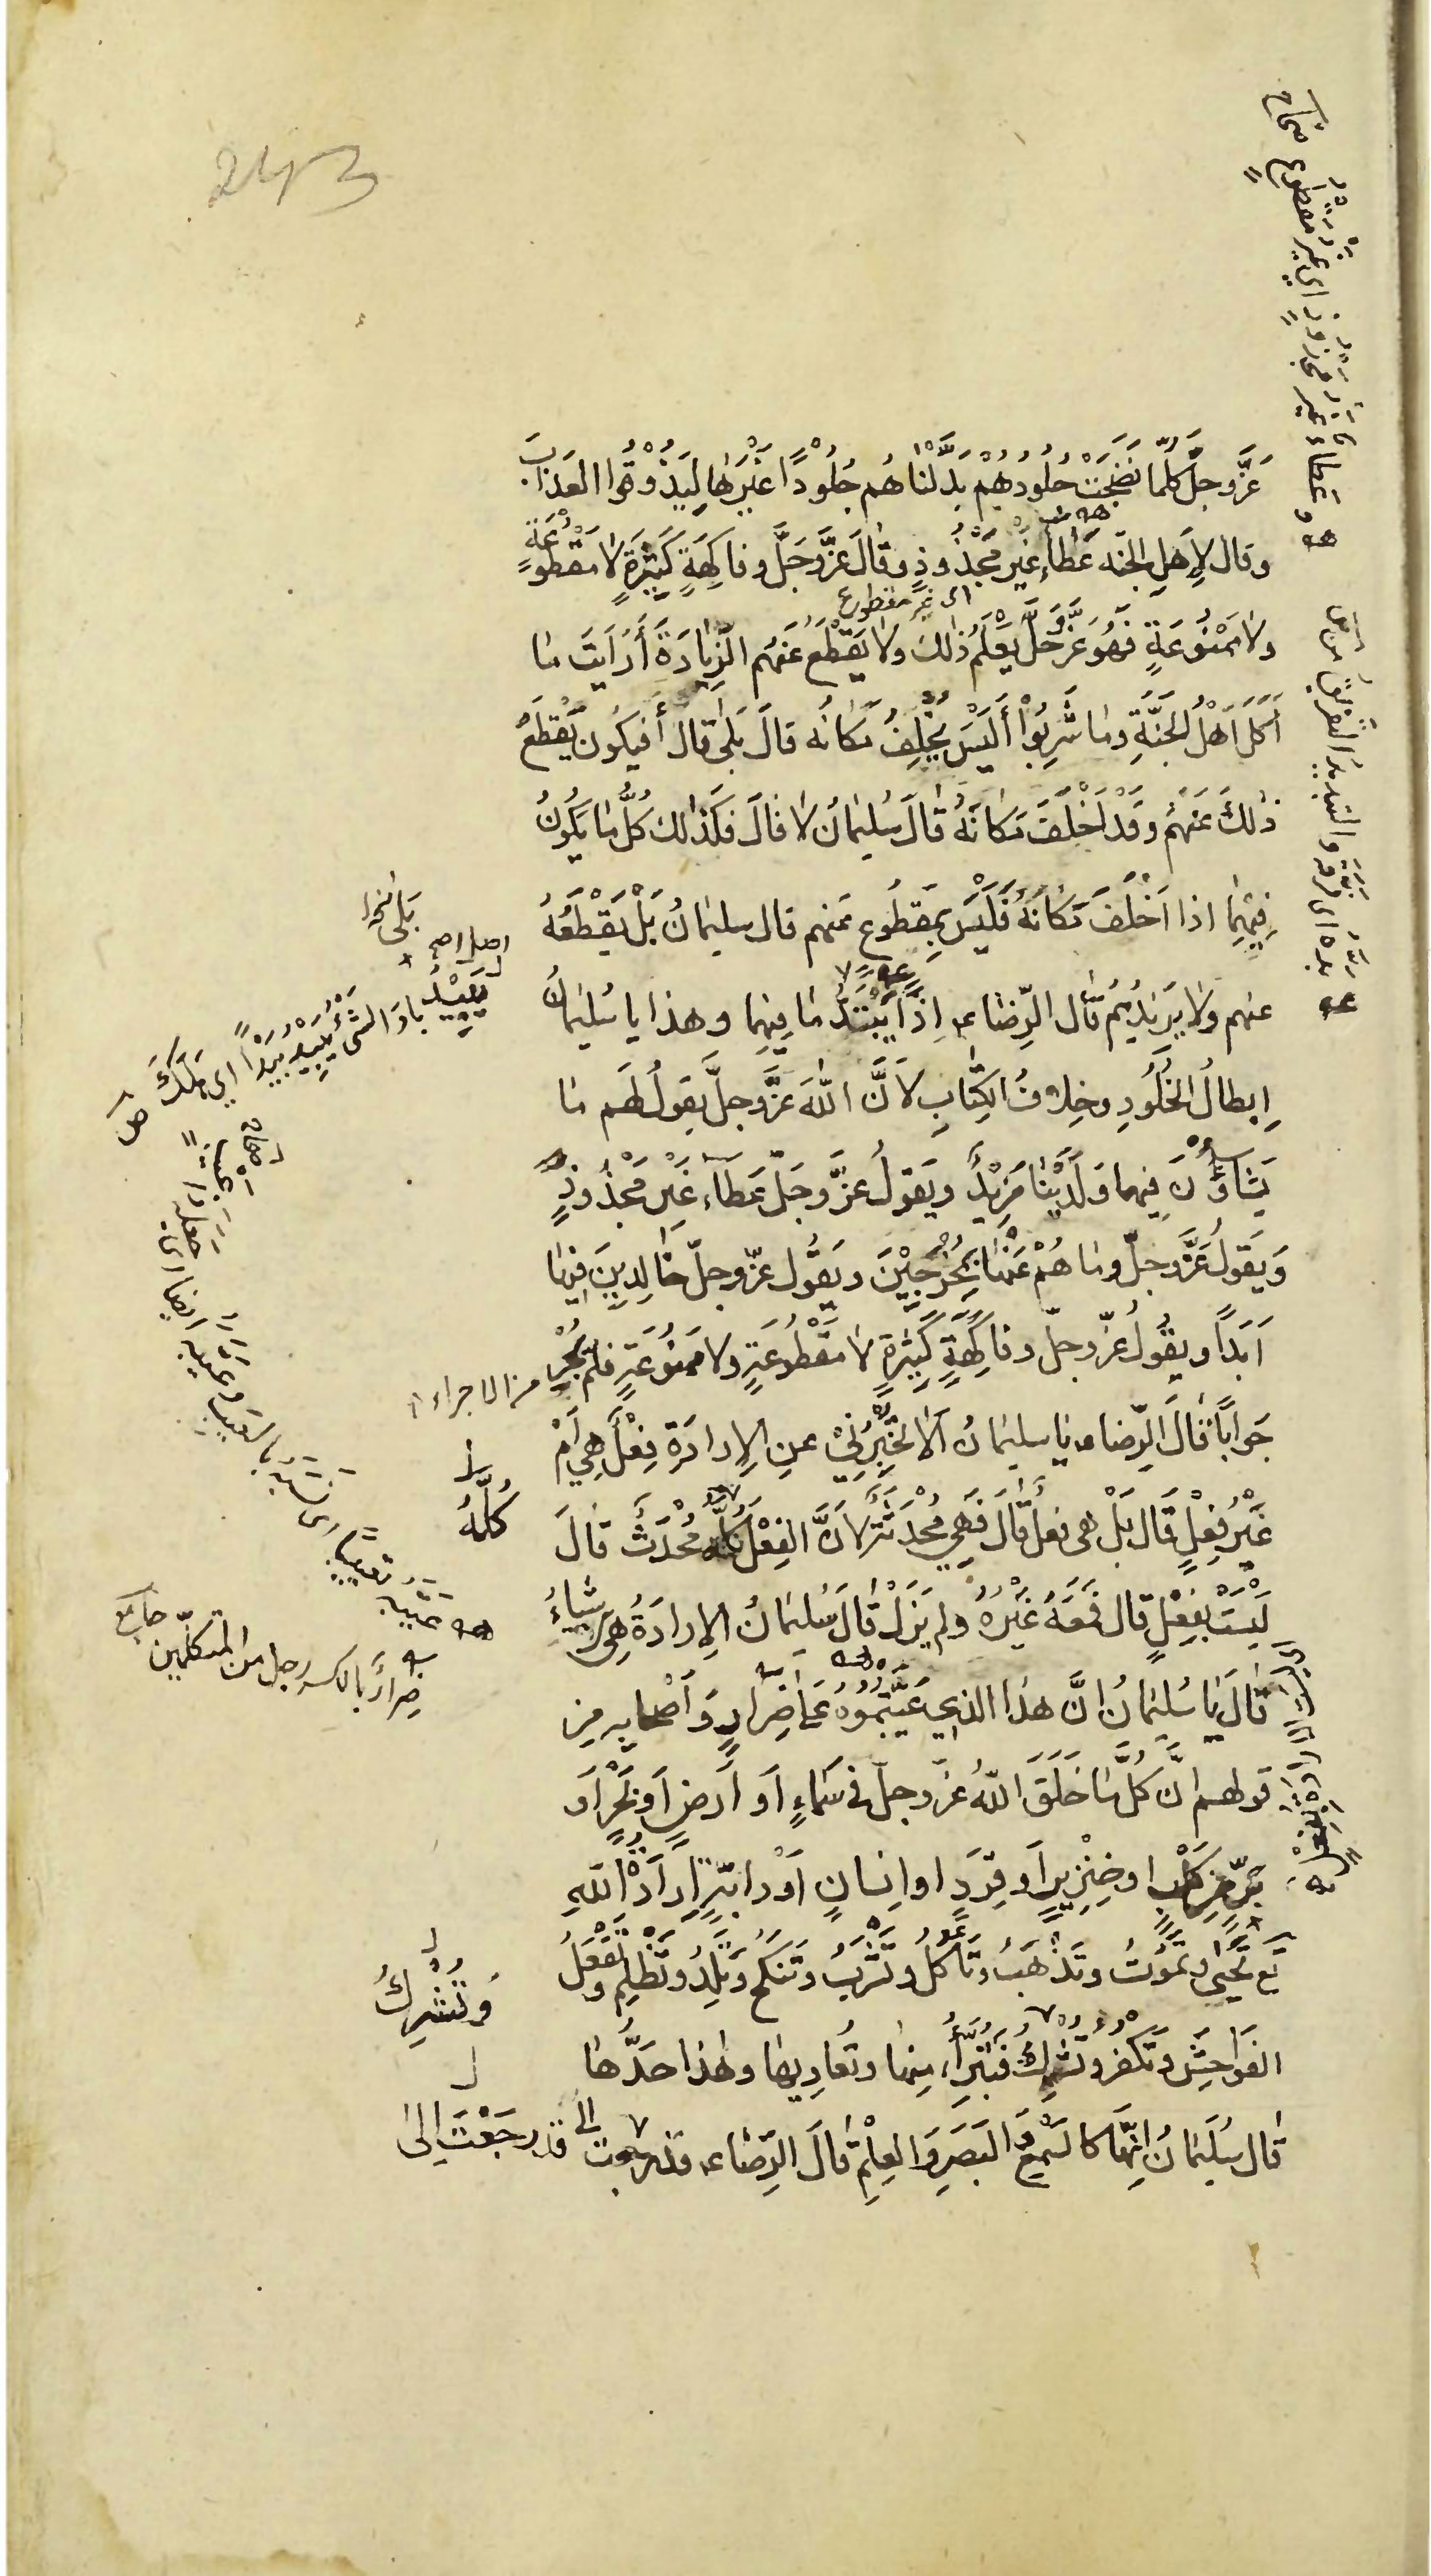 243
عَزَّ وجلّ كُلَّما نَضِجَتْ جُلُودُهُمْ بَدَّلْنٰاهُم جُلُوْدًا غَيْرَهٰا لِيَذُوْقُوا العَذابَ
وقال لِاَهلِ الجنّه عَطٰاءً غَيْرَ مَجْذُوذٍ وقٰالَ عَزَّ وَجَلَّ وفاكِهَةٍ كَثِيْرَةٍ لٰا مَقْطُوْعَةٍ
اى غير مقطوع
ولٰا مَمْنُوْعَةٍ فَهُوَ عَزَّ وَجَلَّ يَعْلَمُ ذٰلِكَ ولٰا يَقْطَعُ عَنْهُم الزِّيٰادَةَ أَرَأَيْتَ مٰا
اَكَلَ اَهْلُ الْجَنَّةِ ومٰا شَرِبُوْا أَلَيْسَ يُخْلِفُ مَكٰانَه قالَ بَلىٰ قٰالَ أَفَيكُون يَقْطَعُ
ذٰلِكَ عَنْهُمْ وقَدْ اَخْلَفَ مَكٰانَهُ قٰالَ سُلَيمٰانُ لٰا قٰالَ فكَذٰلكَ كُلُّ مٰا يَكُونُ
فِيْهٰا اذا اَخْلَفَ مَكٰانَهُ فَلَيْسَ بِمَقْطُوعٍ عَنهم قال سليمٰانُ بَلْ يَقْطَعُهُ
عنهم ولٰا يَزِيدُهُمْ قٰال الرِّضٰا ع اِذًا يَبِيْدُ مٰا فِيهٰا وهذا يا سُليمٰانُ
اِبطالُ الخُلُودِ وخِلٰافُ الكِتٰابِ لاَنَّ اللّٰهَ عَزَّ وجلَّ يقولُ لَهُم مٰا
يَشٰاؤُنَ فِيهٰا وَلَدَيْنٰا مَزِيْدٌ ويَقولُ عزَّ وجَلّ عَطٰاءً غَيْرَ مَجْذُوذٍ
وَيَقولُ عَزَّ وجلّ ومٰا هُمْ عَنْهٰا بِمُخْرَجِيْنَ ويَقُول عزّ وجلّ خٰالِدِينَ فِيهٰا
اَبَدًا ويقُولُ عزّ وجلّ وفٰاكِهَةٍ كَثِيْرَةٍ لٰا مَقْطُوعَةٍ ولا ممنُوعَةٍ فلَم يُحِرْ
جَوابًا قٰالَ الرِّضا ع يٰا سليمٰانُ أَلٰا تُخْبِرُنِيْ عنِ الاِرادَة فِعْلٌ هِيَ اَمْ
غَيْرُ فِعْلٍ قَال بَلْ هى فعلٌ قٰالَ فَهِيَ مُحْدَثَةٌ لِاَنَّ الفِعْلَ كُلَّهُ مُحْدَثٌ قٰالَ
لَيْسَتْ بفِعْلٍ قال فَمَعَهُ غَيْرُهُ لم يَزَلْ قٰالَ سُلَيمٰانُ الاِرادَةُ هِىَ اِنشٰاءُ
قٰالَ يٰا سُليمٰانُ اِنَّ هٰذا الذي عَيَّبْتُمُوْهُ عَلىٰ ضِرٰارٍ وَاَصْحٰابِه من
قولهم اِنَّ كُلَّ مٰا خَلَقَ اللّٰهُ عزّ وجلّ فى سَمٰاءٍ اَو اَرضٍ اَو بَحْرٍ اَو
بَرٍّ مِن كَلْبٍ او خِنْزِيرٍ اَو قِرَدٍ او اِنسٰانٍ اَوْ دابّةٍ اِرادَةُ اللّٰهِ
تَحْيىٰ وتَمُوْتُ وتَذْهَبُ وتَأكُلُ وتَشْرَبُ وتَنْكَحُ وتَلِدُ وتَظْلِمُ وتَفْعَلُ
الفَواحِشَ وتَكْفُرُ وتُشْرِكُ فَنَبرَأُ مِنهٰا وتُعٰادِيهٰا وهٰذا حَدُّهٰا
قٰال سُلَيمٰانُ اِنَّهٰا كالسَّمْعِ وَالبَصَرِ وَالعِلْمِ قٰالَ الرِّضٰا ع قد رجعت الى قَد رجَعْتَ اِلىٰ
عَطاءً غير مجذوذٍ اي غيرُ مقطوعٍ صحاح
بلى
يَبِيْدُ
بادَ الشَّئُ يَبِيدُ بَيْدًا اي هلَكَ ص
من الاجراء
كُلُّهُ
ضِرارٌ بالكسر رجل من المتكلّمين جامع
وَتُشْرِكُ